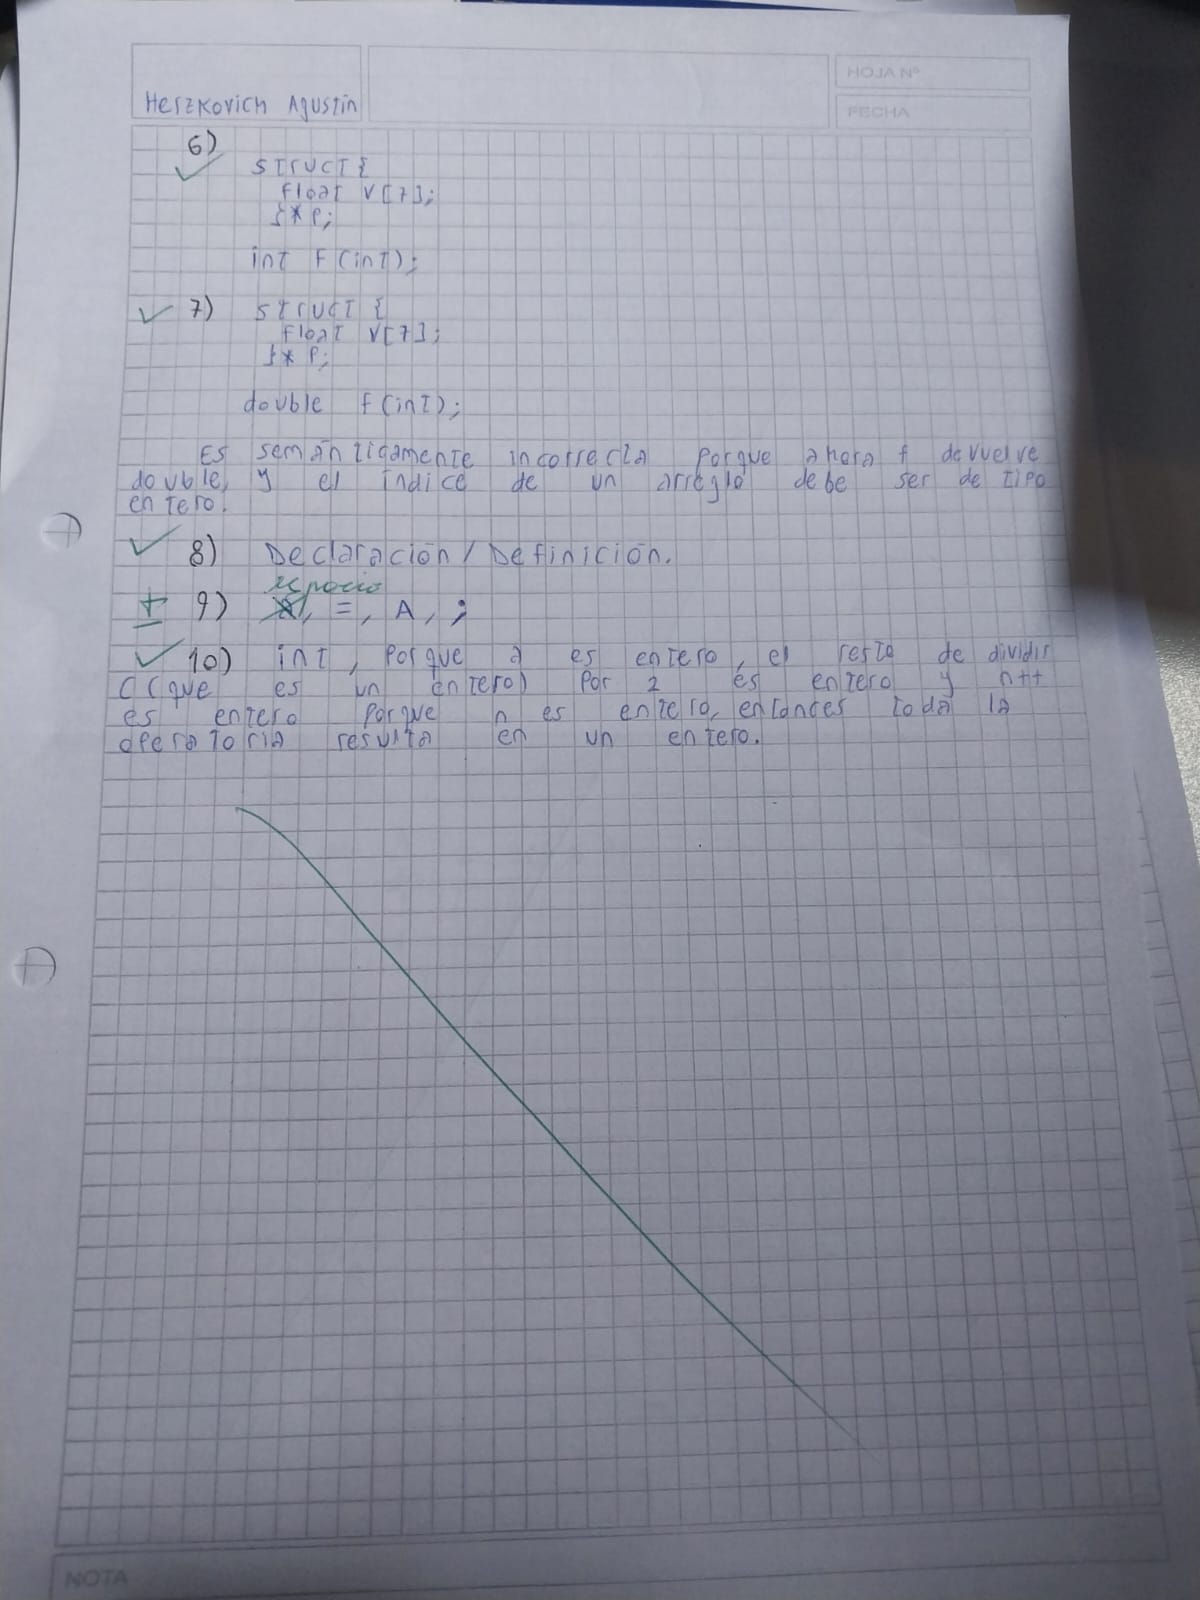 HOJA Nº
Herzkovich Agustin
FECHA
6)
struct {
float v[7];
}* p;
int f(int);
7) struct {
float v[7];
}* p;
double f(int);
Es semánticamente incorrecta porque ahora f devuelve
double, y el índice de un arreglo debe ser de tipo
entero.
8) Declaración / Definición.
espacio
9) , =, A, ;
10) int, porque a es entero, el resto de dividir
c (que es un entero) por 2 es entero y n++
es entero porque n es entero, entonces toda la
operatoria resulta en un entero.
NOTA